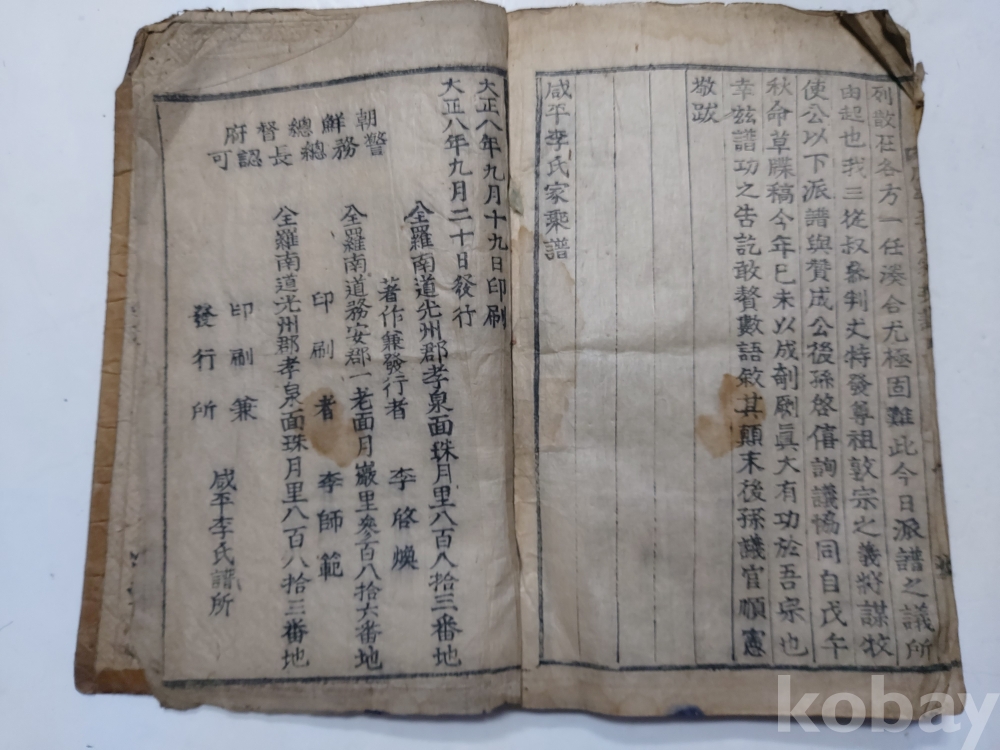 列設在各方一任湊合尤極固難此今日派譜之議所
由起也我三從叔參判丈特發尊祖敦宗之義將謀牧
使公以下派譜與贊成公後孫啓僖詢議恊同自戊午
秋命草牒稿今年己未以成剞劂眞大有功於吾宗也
幸玆譜功之告訖敢贅數語敘其顛末後孫議官順憲
敬跋
咸平李氏家乘譜
大正八年九月十九日印刷
大正八年九月二十日發行
全羅南道光州郡孝泉面珠月里八百八拾三番地
著作兼發行者 李啓煥
全羅南道務安郡一老面月巖里參百八拾六番地
印刷者 李師範
全羅南道光州郡孝泉面珠月里八百八拾三番地
印刷兼
發行所 咸平李氏譜所
朝鮮總督府
警務總長認可
kobay